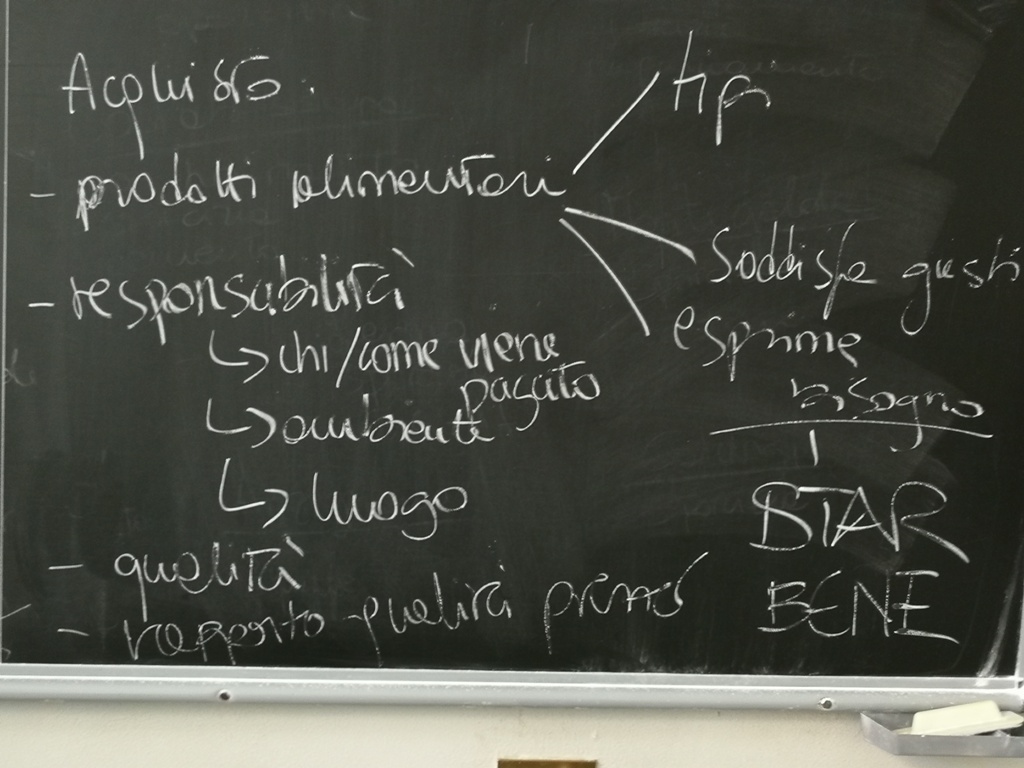 Acquisto.
- prodotti alimentari
tipi
soddisfa gusti
esprime
bisogno
STAR
BENE
- responsabilità
↳ chi/come viene
pagato
↳ ambiente
↳ luogo
- qualità
- rapporto qualità prezzo